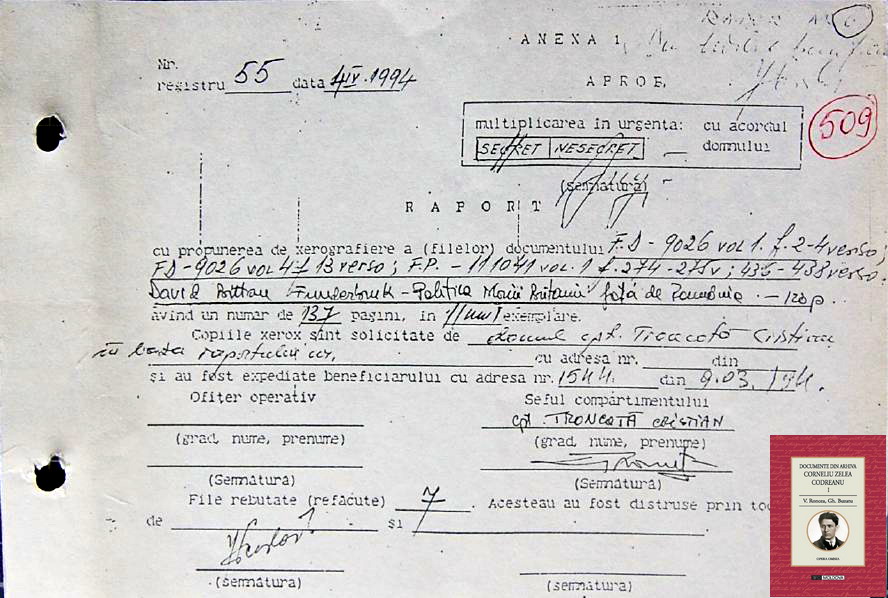 6
ANEXA 1
Nr.
registru 55 data 4 IV. 1994
APROB,
509
multiplicarea în urgenta: cu acordul
SECRET NESECRET domnului
(semnatura)
RAPORT
cu propunerea de xerografiere a (filelor) documentului F.D - 9026 vol 1. f. 2-4 verso;
FD - 9026 vol 4 f 13 verso; F.P. - 111041 vol. 1 f. 274-275v; 436-438 verso.
David Britton Funderburk - Politica Marii Britanii față de România. - 120 p.
avind un numar de 137 pagini, in 1 (unu) exemplare.
Copiile xerox sint solicitate de domnul cpt. Troncotă Cristian
în baza raportului nr. cu adresa nr. din
și au fost expediate beneficiarului cu adresa nr. 1544 din 9.03. 194.
Ofiter operativ Seful compartimentului
cpt. TRONCOTĂ CRISTIAN
(grad, nume, prenume) (grad, nume, prenume)
(Semnatura) (Semnatura)
File rebutate (refacute) 7. Acesteau au fost distruse prin toc
de și
(semnatura) (semnatura)
DOCUMENTE DIN ARHIVA
CORNELIU ZELEA
CODREANU
I
V. Roncea, Gh. Buzatu
OPERA OMNIA
MOLDOVA